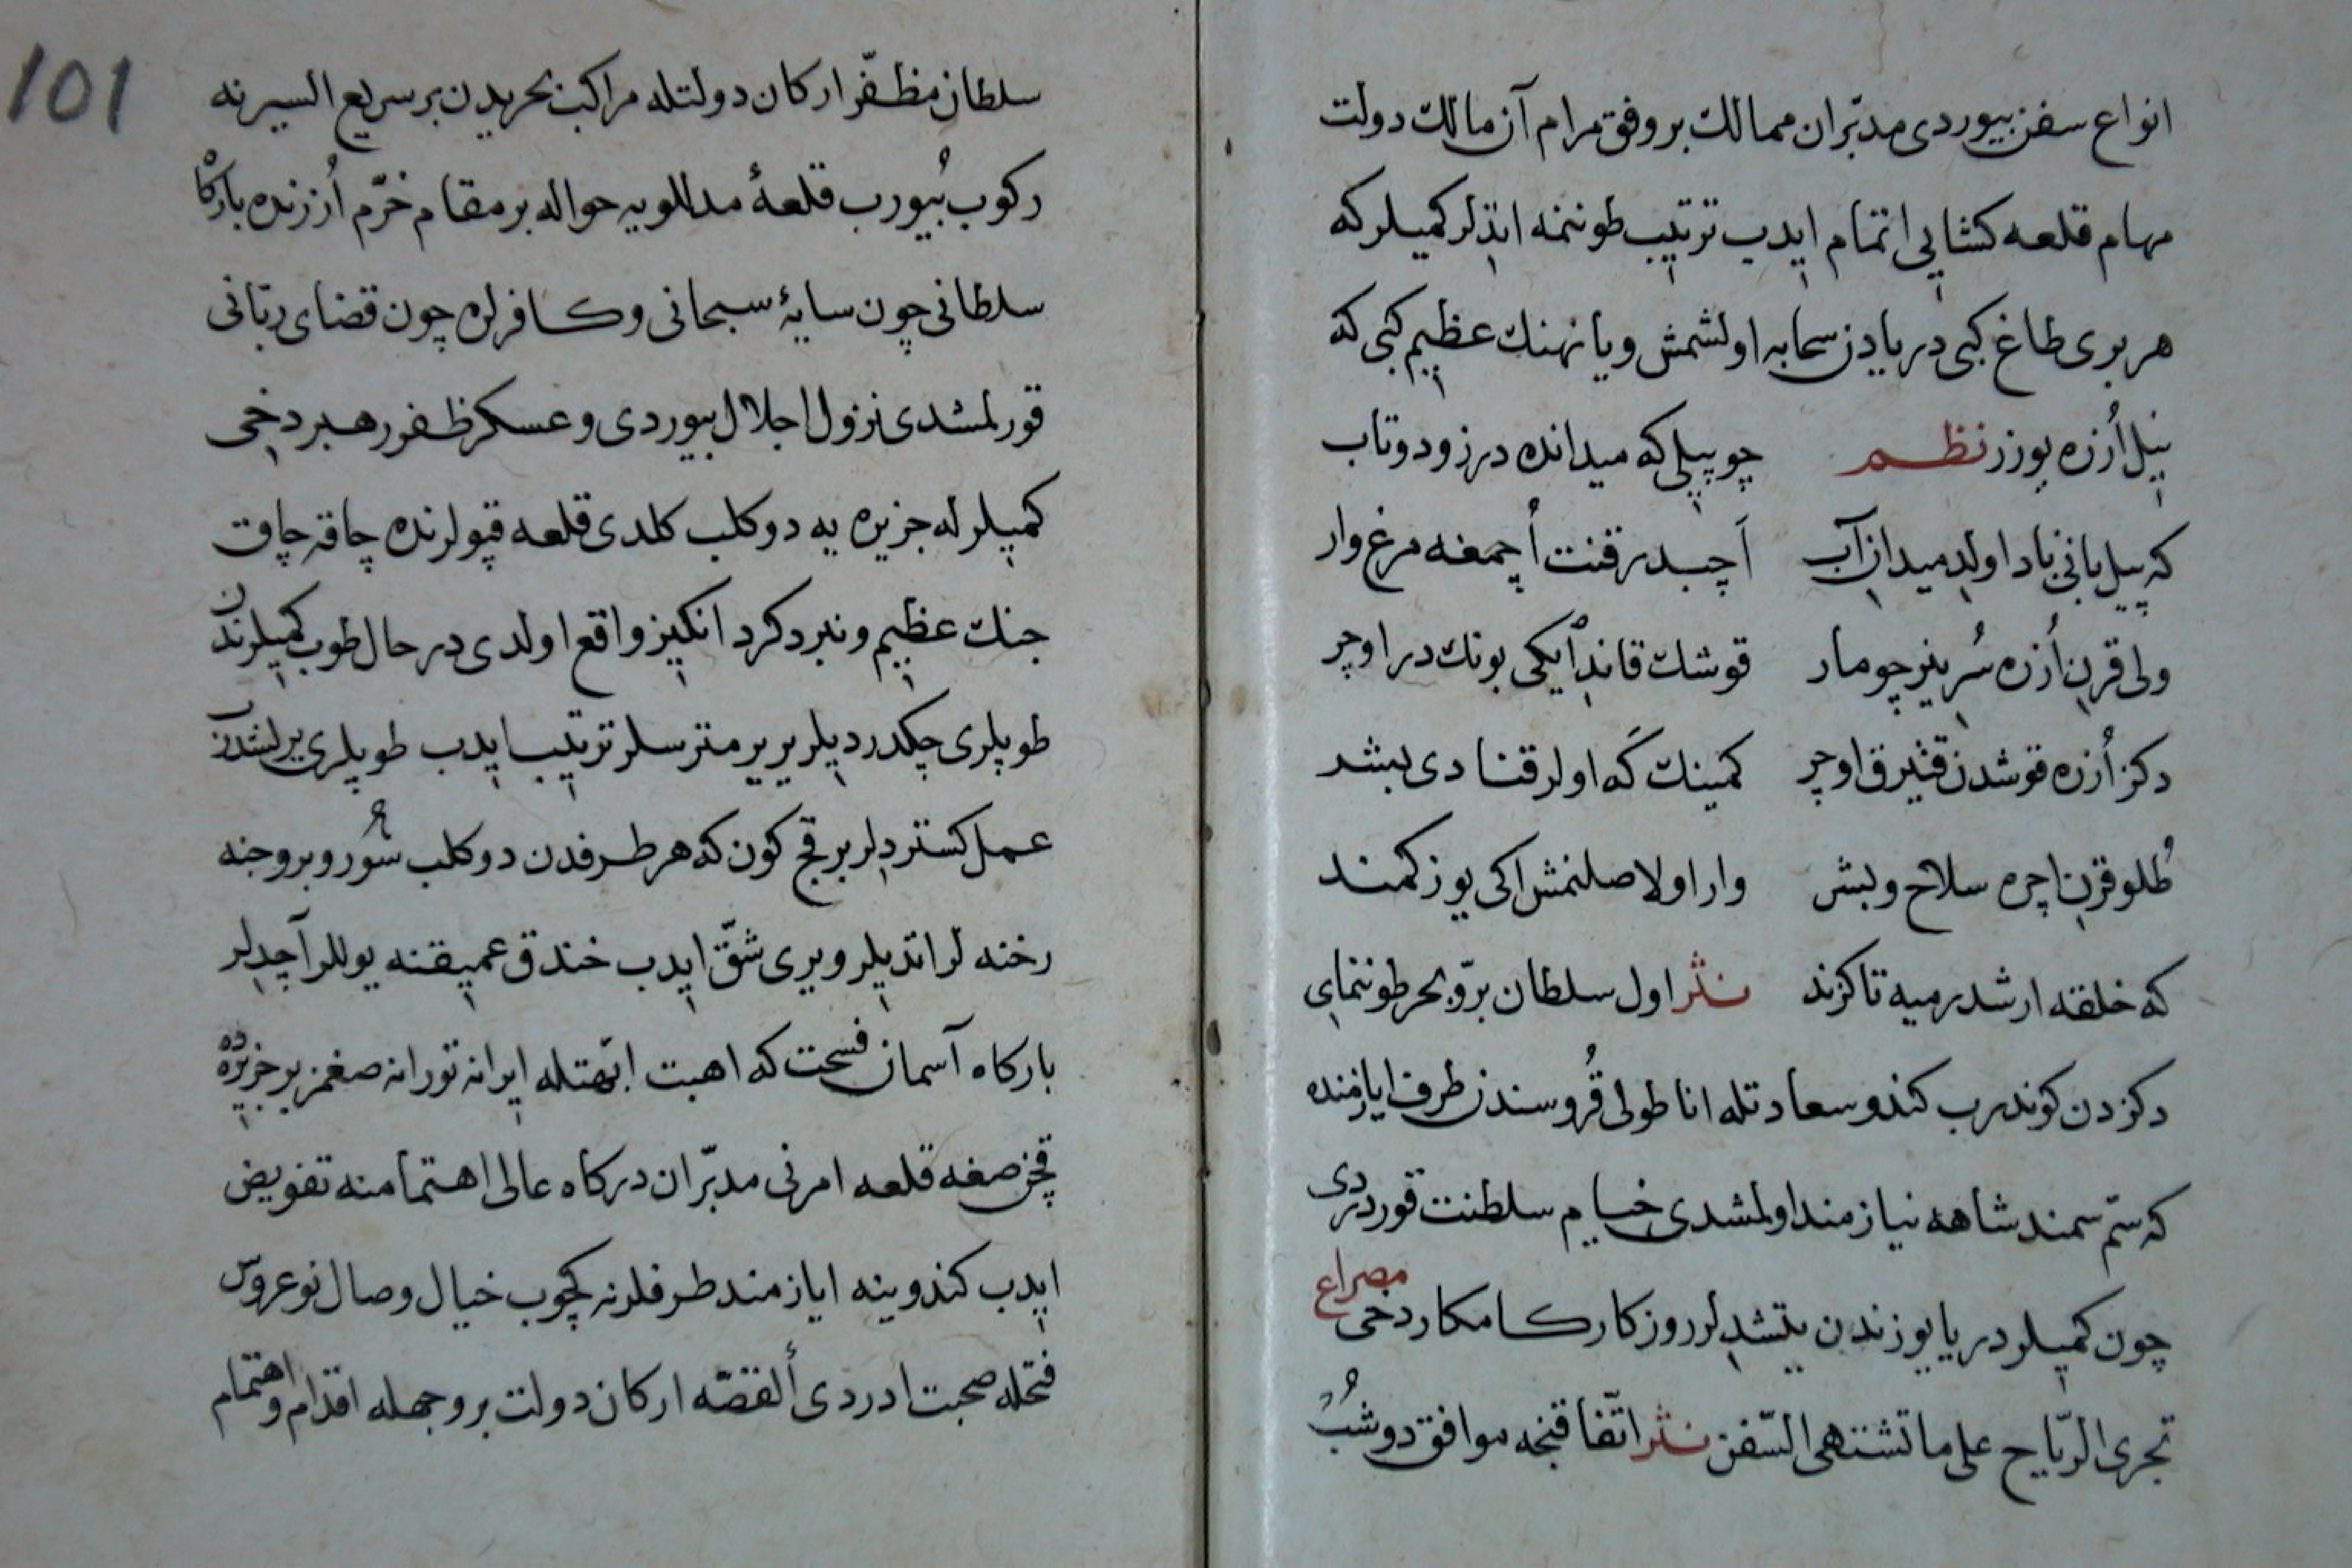 انواع سفن بیوردی مدبّران ممالك بر وفق مرام آن مالك دولت
مهام قلعه کشایی اتمام ایدب ترتیب طوننمه اتدلر کمیلر که
هر بری طاغ کبی دریادن سحابه اولشمش ویا نهنك عظیم کبی که
نیل اُزره یوزر نظم چو پیلی که میدانده درزود و تاب
که پیل بانی باد اولدی میدان آب اَچبدر قنت اُچمغه مرغ وار
ولی قرن اُزره سُرینر چو مار قوشك قاندٔ ایکی بونك در اوچر
دکز اُزره قوشدن قتیرق اوچر کمینك که اولر قنادی بیشد
طُلو قرن اچره سلاح و لبش وار اولا صلنمش اکی یوز کمند
که خلقته ارشدر میه تا کزند نثر اول سلطان برّ و بحر طوننمای
دکزدن کوندرب کندو سعادتله اناطولی قُروسندن طرف ایازمنده
که سمّ سمند شاهه نیازمند اولمشدی خیام سلطنت قوردردی
چون کمیلر دریا یوزندن یتشدلر روزکار کامکار دخی مصراع
تجری الرّیاح علی ما تشتهی السّفن نثر اتّفاقنجه موافق دوشُبْ
101
سلطان مظفّر ارکان دولتله مراکب بحریدن بر سریع السیرنه
رکوب بُیورب قلعهٔ مدللویه حواله بر مقام خرّم اُزرنده بارکاه
سلطانی چون سایهٔ سبحانی و کافرلره چون قضای ربّانی
قورلمشدی نزول اجلال بیوردی و عسکر ظفر رهبر دخی
کمیلرله جزیره یه دوکلب کلدی قلعه قپولرنده چاقه چاق
جنك عظیم و نبرد کرد انکیز واقع اولدی در حال طوب کمیلرندن
طوپلری چکدردیلر یر یر مترسلر ترتیب ایدب طوپلری یرلشدرب
عمل کستردلر بر قچ کون که هر طرفدن دوکلب سُور و بروجنه
رخنه لر اتدیلر و یری شقّ ایدب خندق عمیقنه یوللر آچدلر
بارکاه آسمان فسحت که اهبت ابّهتله ایرانه تورانه صغمز بر جزیره ده
قچن صغه قلعه امرنی مدبّران درکاه عالی اهتمامنه تفویض
ایدب کندوینه ایازمند طرفلرنه کچوب خیال وصال نو عروس
فتحله صحبت ادردی ألقصّه ارکان دولت بر وجهله اقدام و اهتمام